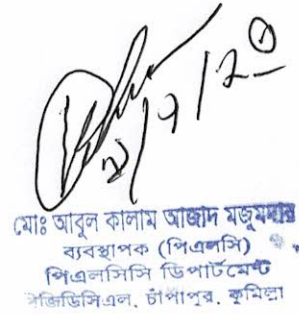 মোঃ আবুল কালাম আজাদ মজুমদার
ব্যবস্থাপক (পিএলসি)
পিএলসিসি ডিপার্টমেন্ট
বিজিডিসিএল, চাঁপাপুর, কুমিল্লা